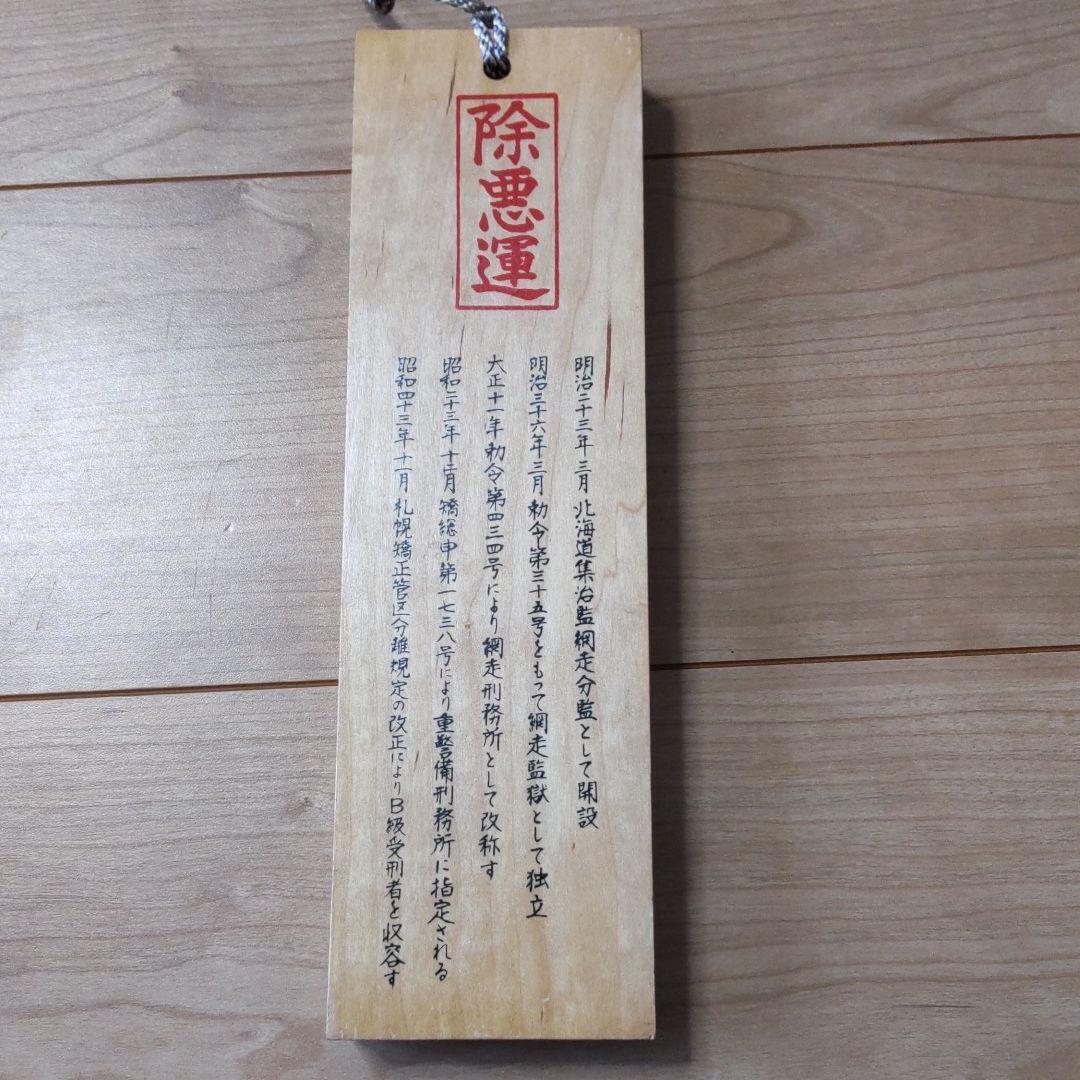 除悪運
明治二十三年三月 北海道集治監網走分監として開設
明治三十六年三月 勅令第三十五号をもって網走監獄として独立
大正十一年 勅令第四三四号により網走刑務所として改称す
昭和二十三年十二月 矯総申第一七三八号により重警備刑務所に指定される
昭和四十三年十一月 札幌矯正管区分離規定の改正によりB級受刑者を収容す